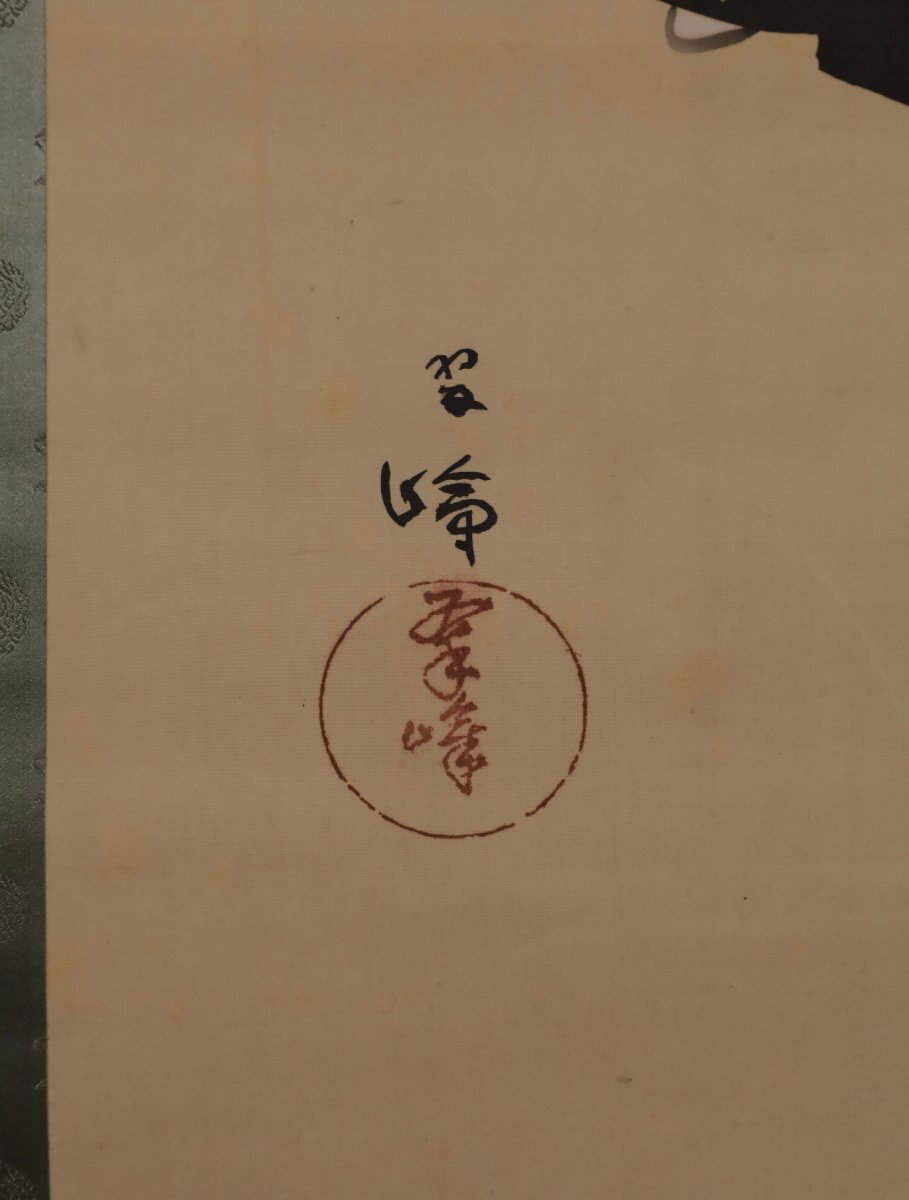 翠
峰
翠
峰